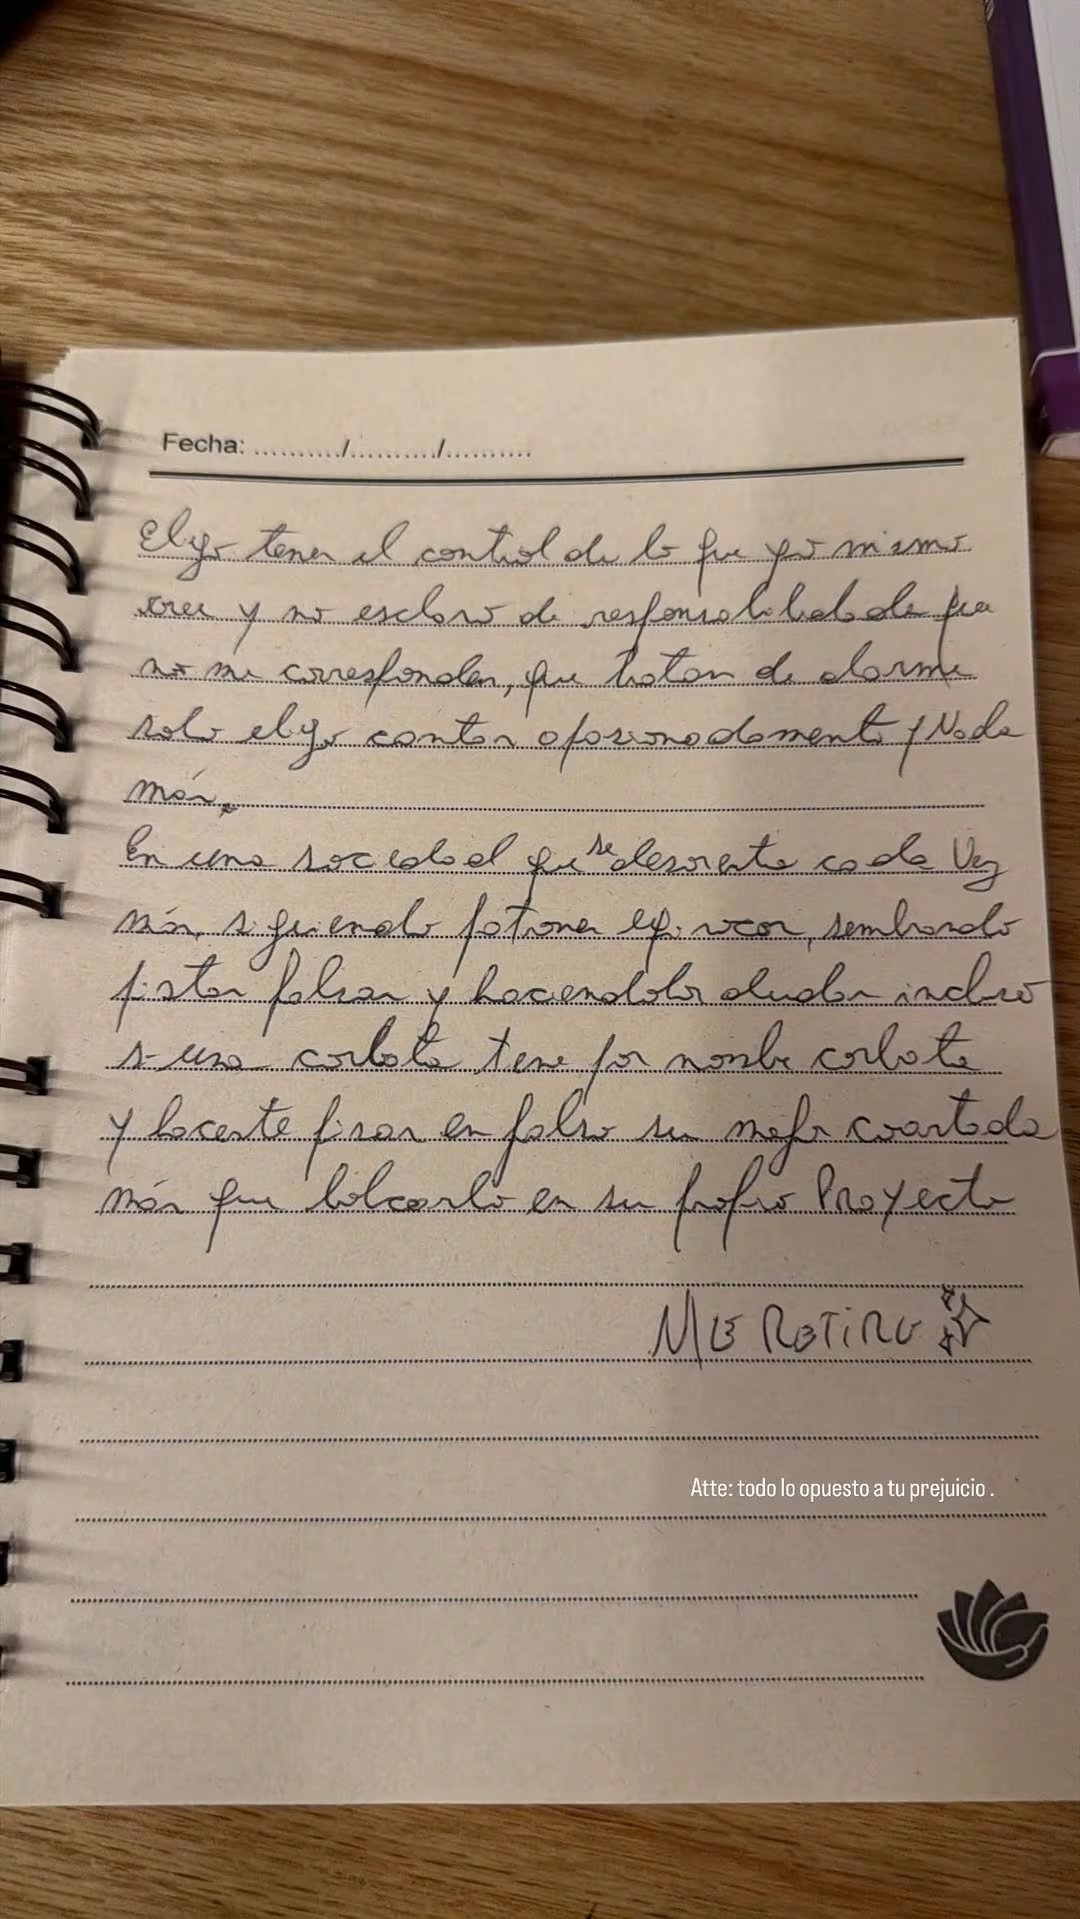 Fecha: ........../........../..........
Elijo tener el control de lo que yo mismo
cree y no esclavo de responsabilidade que
no me corresponden, que tratan de darme
solo elijo cantar apasionadamente y Nada
más.
En una sociedad que se desorienta cada Vez
más, siguiendo patrones equivocos, sembrando
pistas falsas y haciendoles dudar incluso
si una corbata tiene por nombre corbata
y hacerte pisar en falso su mejor coartada
más que bolcarlo en su propio Proyecto
ME RETIRO
Atte: todo lo opuesto a tu prejuicio .